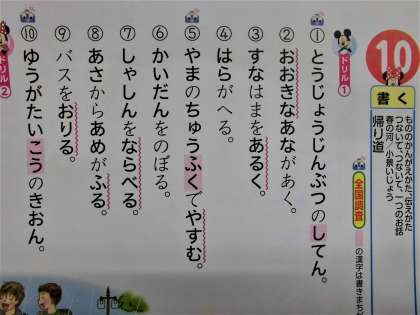 10
書く
もののかんがえかた、伝えかた
つないで、つないで、一つのお話
春の河／小景いじょう
帰り道
全国調査
の漢字は書きまち
ドリル1
① とうじょうじんぶつのしてん。
② おおきなあながあく。
③ すなはまをあるく。
④ はらがへる。
⑤ やまのちゅうふくでやすむ。
⑥ かいだんをのぼる。
⑦ しゃしんをならべる。
⑧ あさからあめがふる。
⑨ バスをおりる。
⑩ ゆうがたいこうのきおん。
ドリル2